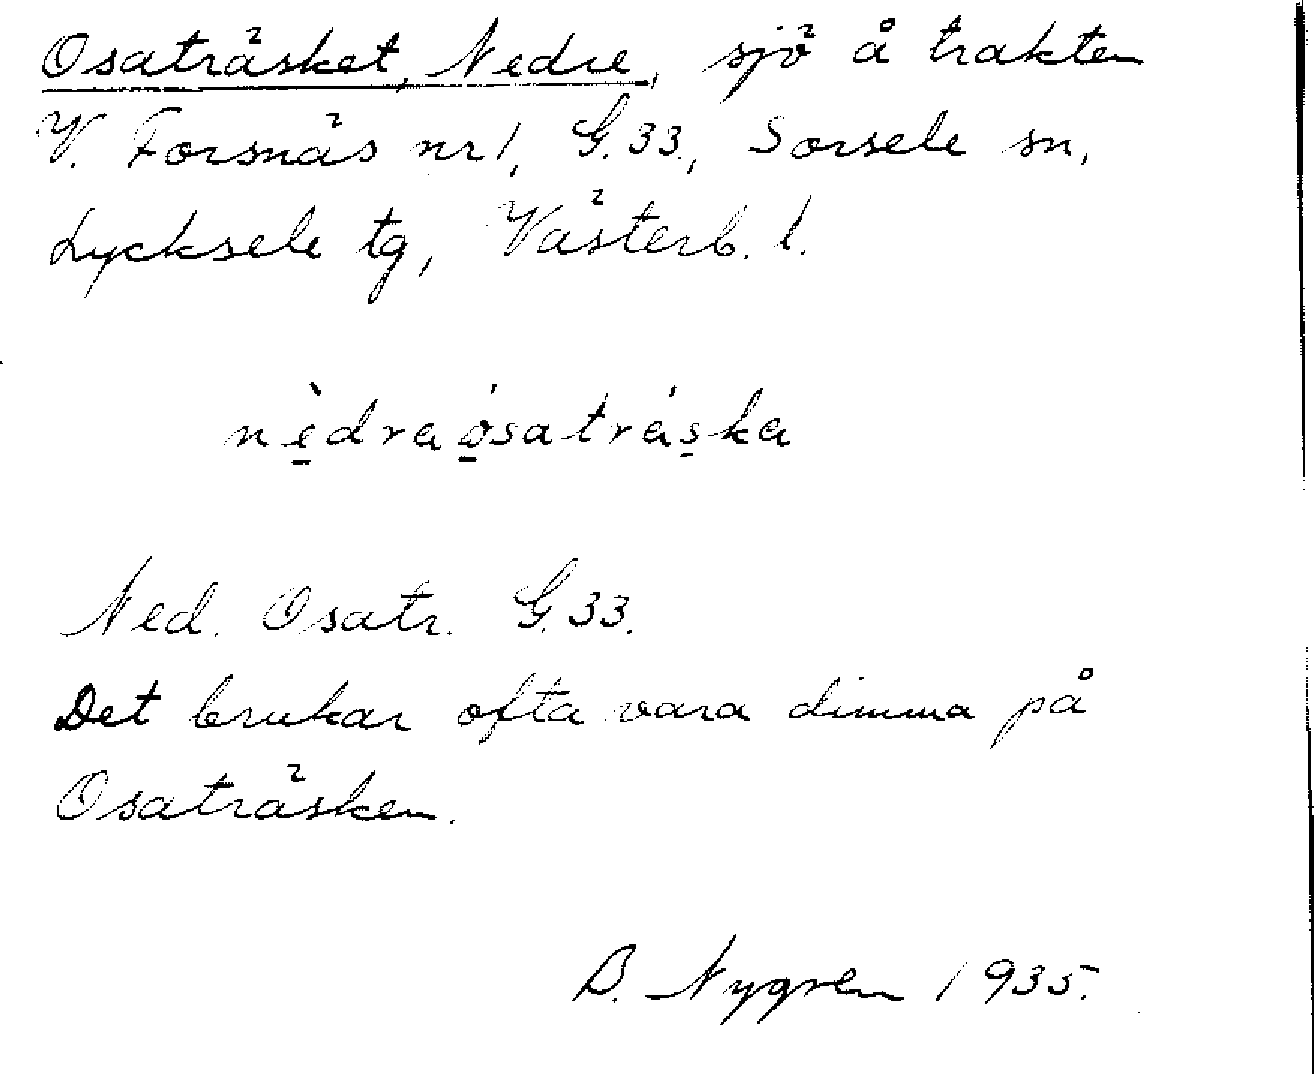 Osaträsket, Nedre, sjö å trakten
V. Forsnäs nr 1, G.33., Sorsele sn,
Lycksele tg, Västerb. l.
nèdraósatráska
Ned. Osatr. G.33.
Det brukar ofta vara dimma på
Osaträsken.
B. Nygren 1935.